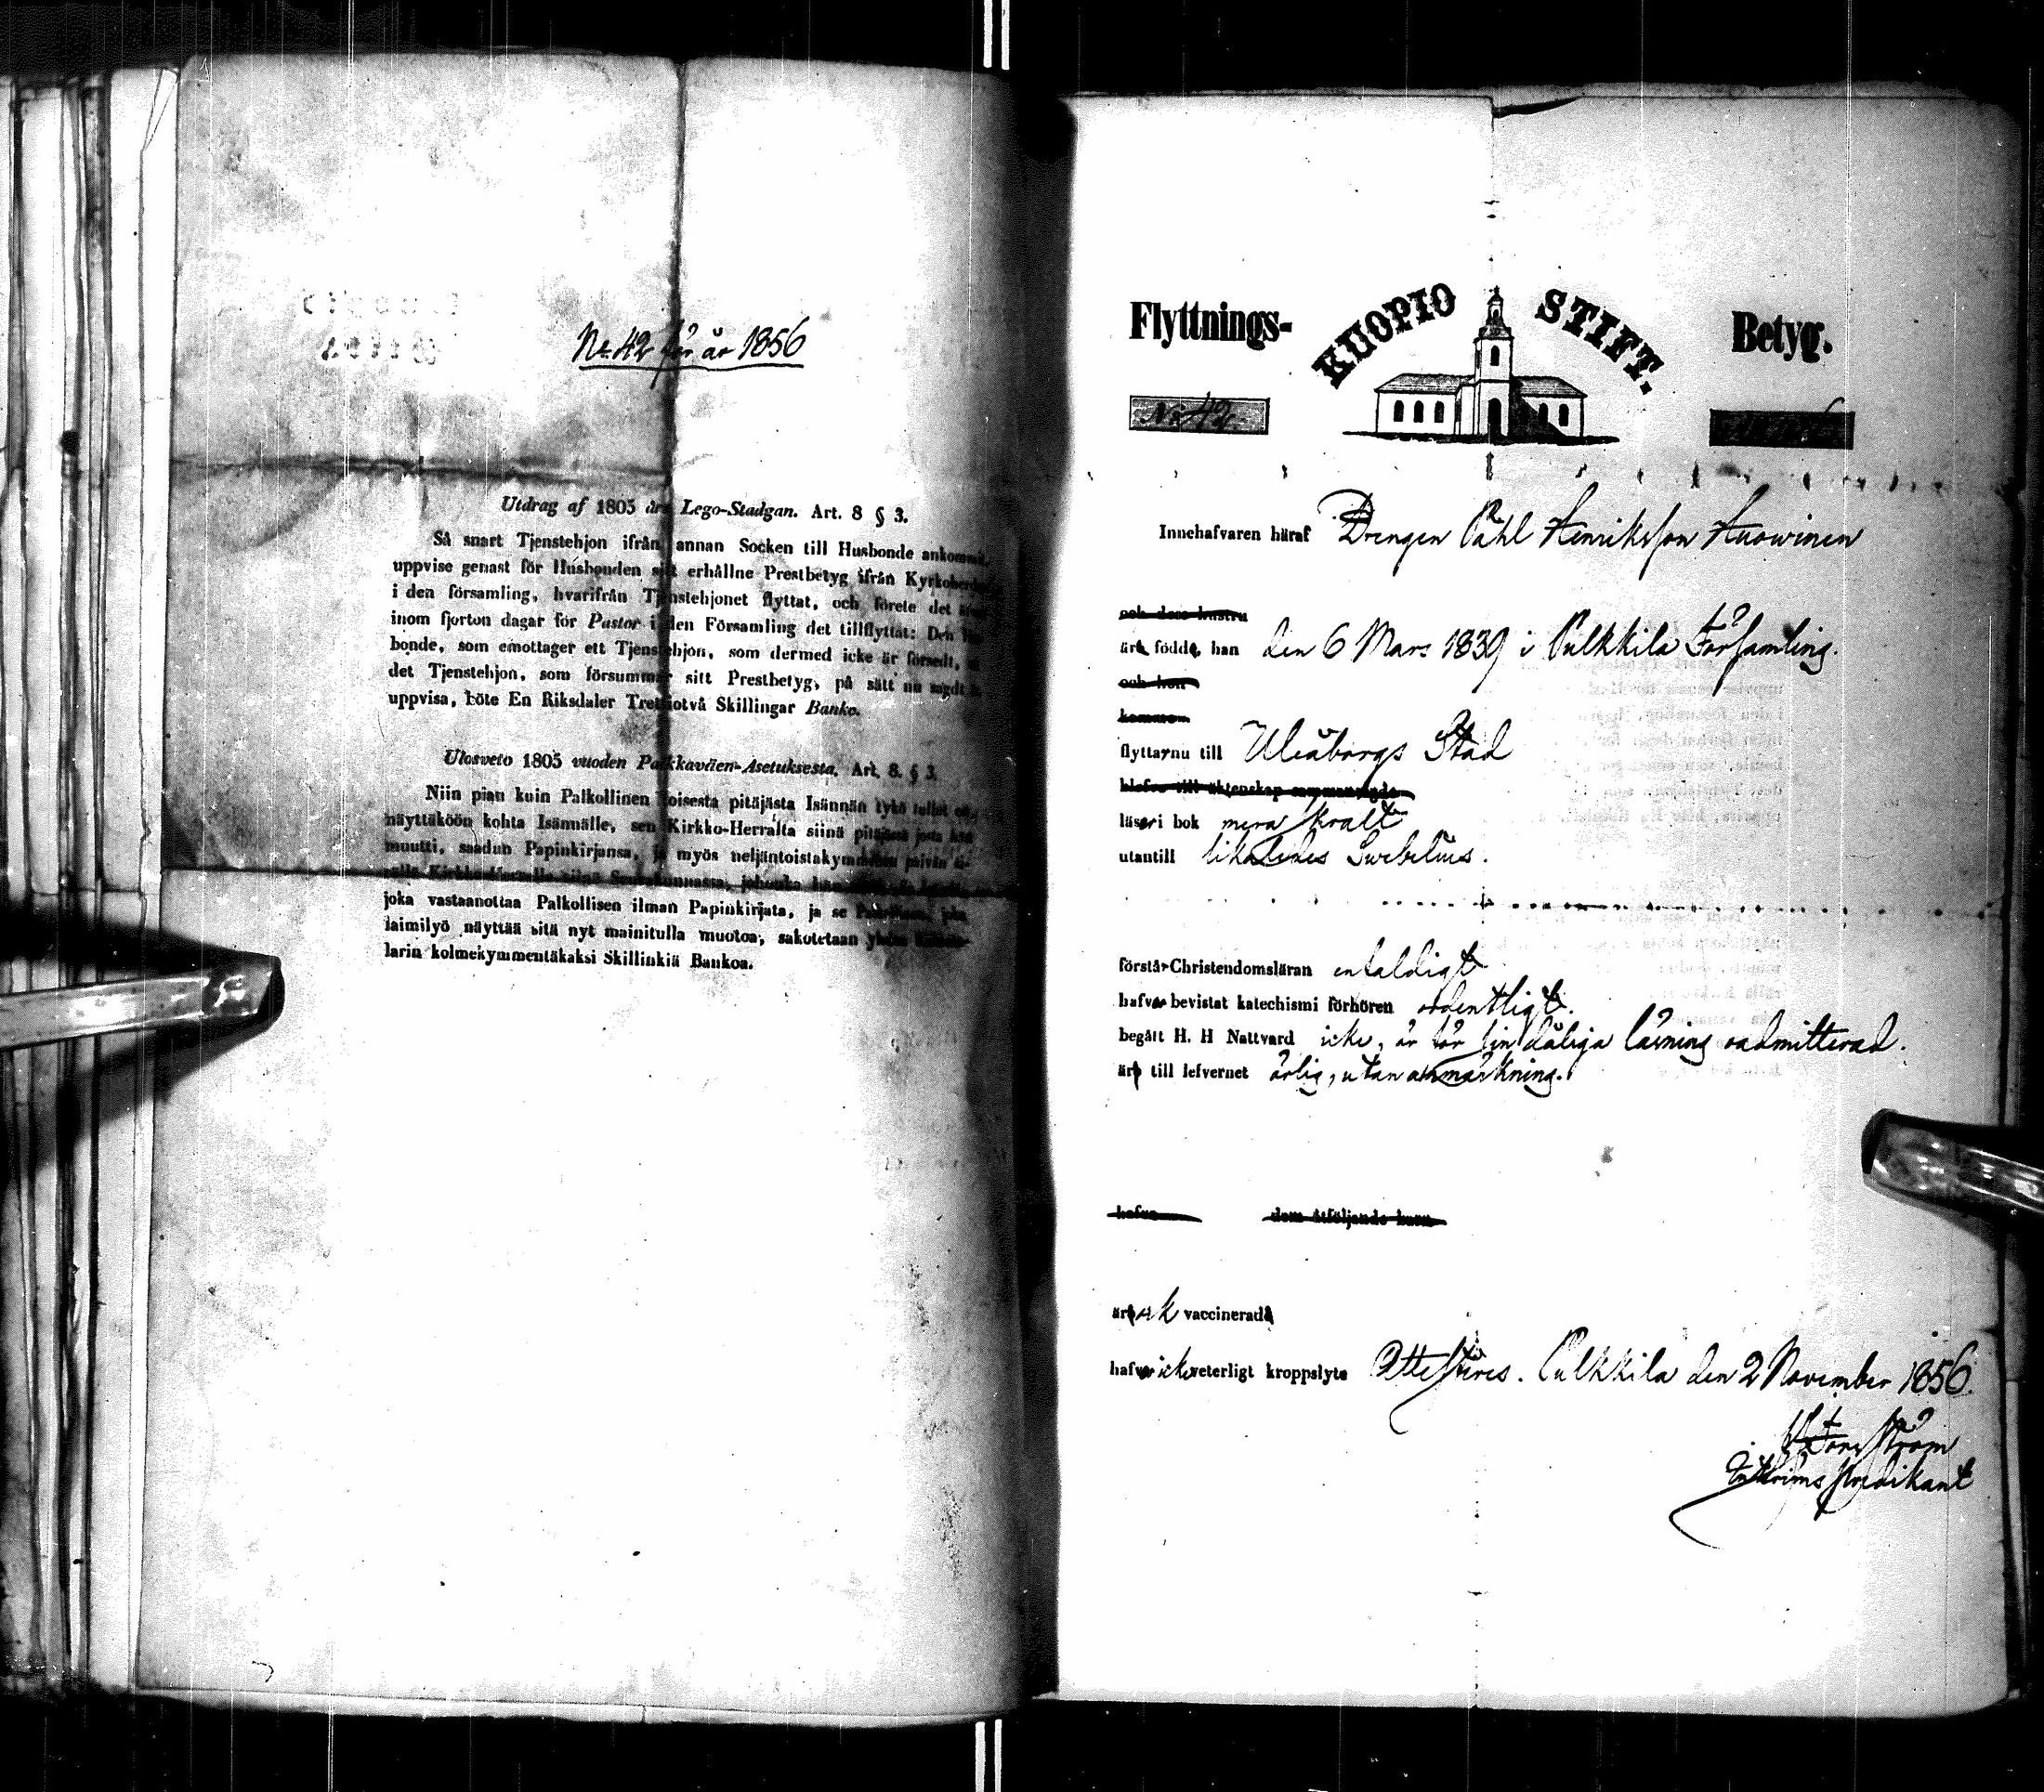 No 42 för år 1856
Utdrag af 1805 års Lego-Stadgan. Art. 8 § 3.
Så snart Tjenstehjon ifrån annan Socken till Husbonde ankommit,
uppvise genast för Husbonden sitt erhållne Prestbetyg ifrån
i den församling, hvarifrån Tjenstehjonet flyttat, och förete det
inom fjorton dagar för Pastor i den Församling det tillflyttat: Den
bonde, som emottager ett Tjenstehjon, som dermed icke är försedt,
det Tjenstehjon, som försummar sitt Prestbetyg, på sätt nu sagdt
uppvisa, böte En Riksdaler Trettiotvå Skillingar Banko.
Ulosveto 1805 vuoden Palkkaväen-Asetuksesta. Art. 8. § 3.
Niin pian kuin Palkollinen toisesta pitäjästa Isännän tykö tullut on,
näyttäköön kohta Isännälle, sen Kirkko-Herralta siinä pitäjässä josta hän
muutti, saadun Papinkirjansa, ja myös neljäntoistakymmenen päivän
joka vastaanottaa Palkollisen ilman Papinkirjata, ja se
laimilyö näyttää sitä nyt mainitulla muotoa, sakotetaan
larin kolmekymmentäkaksi Skillinkiä Bankoa.
Flyttnings- KUOPIO STIFT. Betyg.
No 42
Innehafvaren häraf Drengen Påhl Henriksson Huowinen
och dess hustru
äro födde, han den 6 Mars 1839 i Pulkkila Församling.
och hon
komme
flyttar nu till Uleåborgs Stad
blefvo till äktenskap sammanvigde
läser i bok mera svalt
utantill likaledes Swebelius.
förstår Christendomsläran enfaldigt
hafver bevistat katechismi förhören ordentligt.
begått H. H Nattvard icke, är för sin dåliga läsning oadmitterad.
äro till lefvernet ärlig, utan anmärkning.
hafva dem åtföljande barn
äro ok vaccinerade
hafver icke veterligt kroppslyte Attesteres. Pulkkila den 2 November 1856.
Predikant